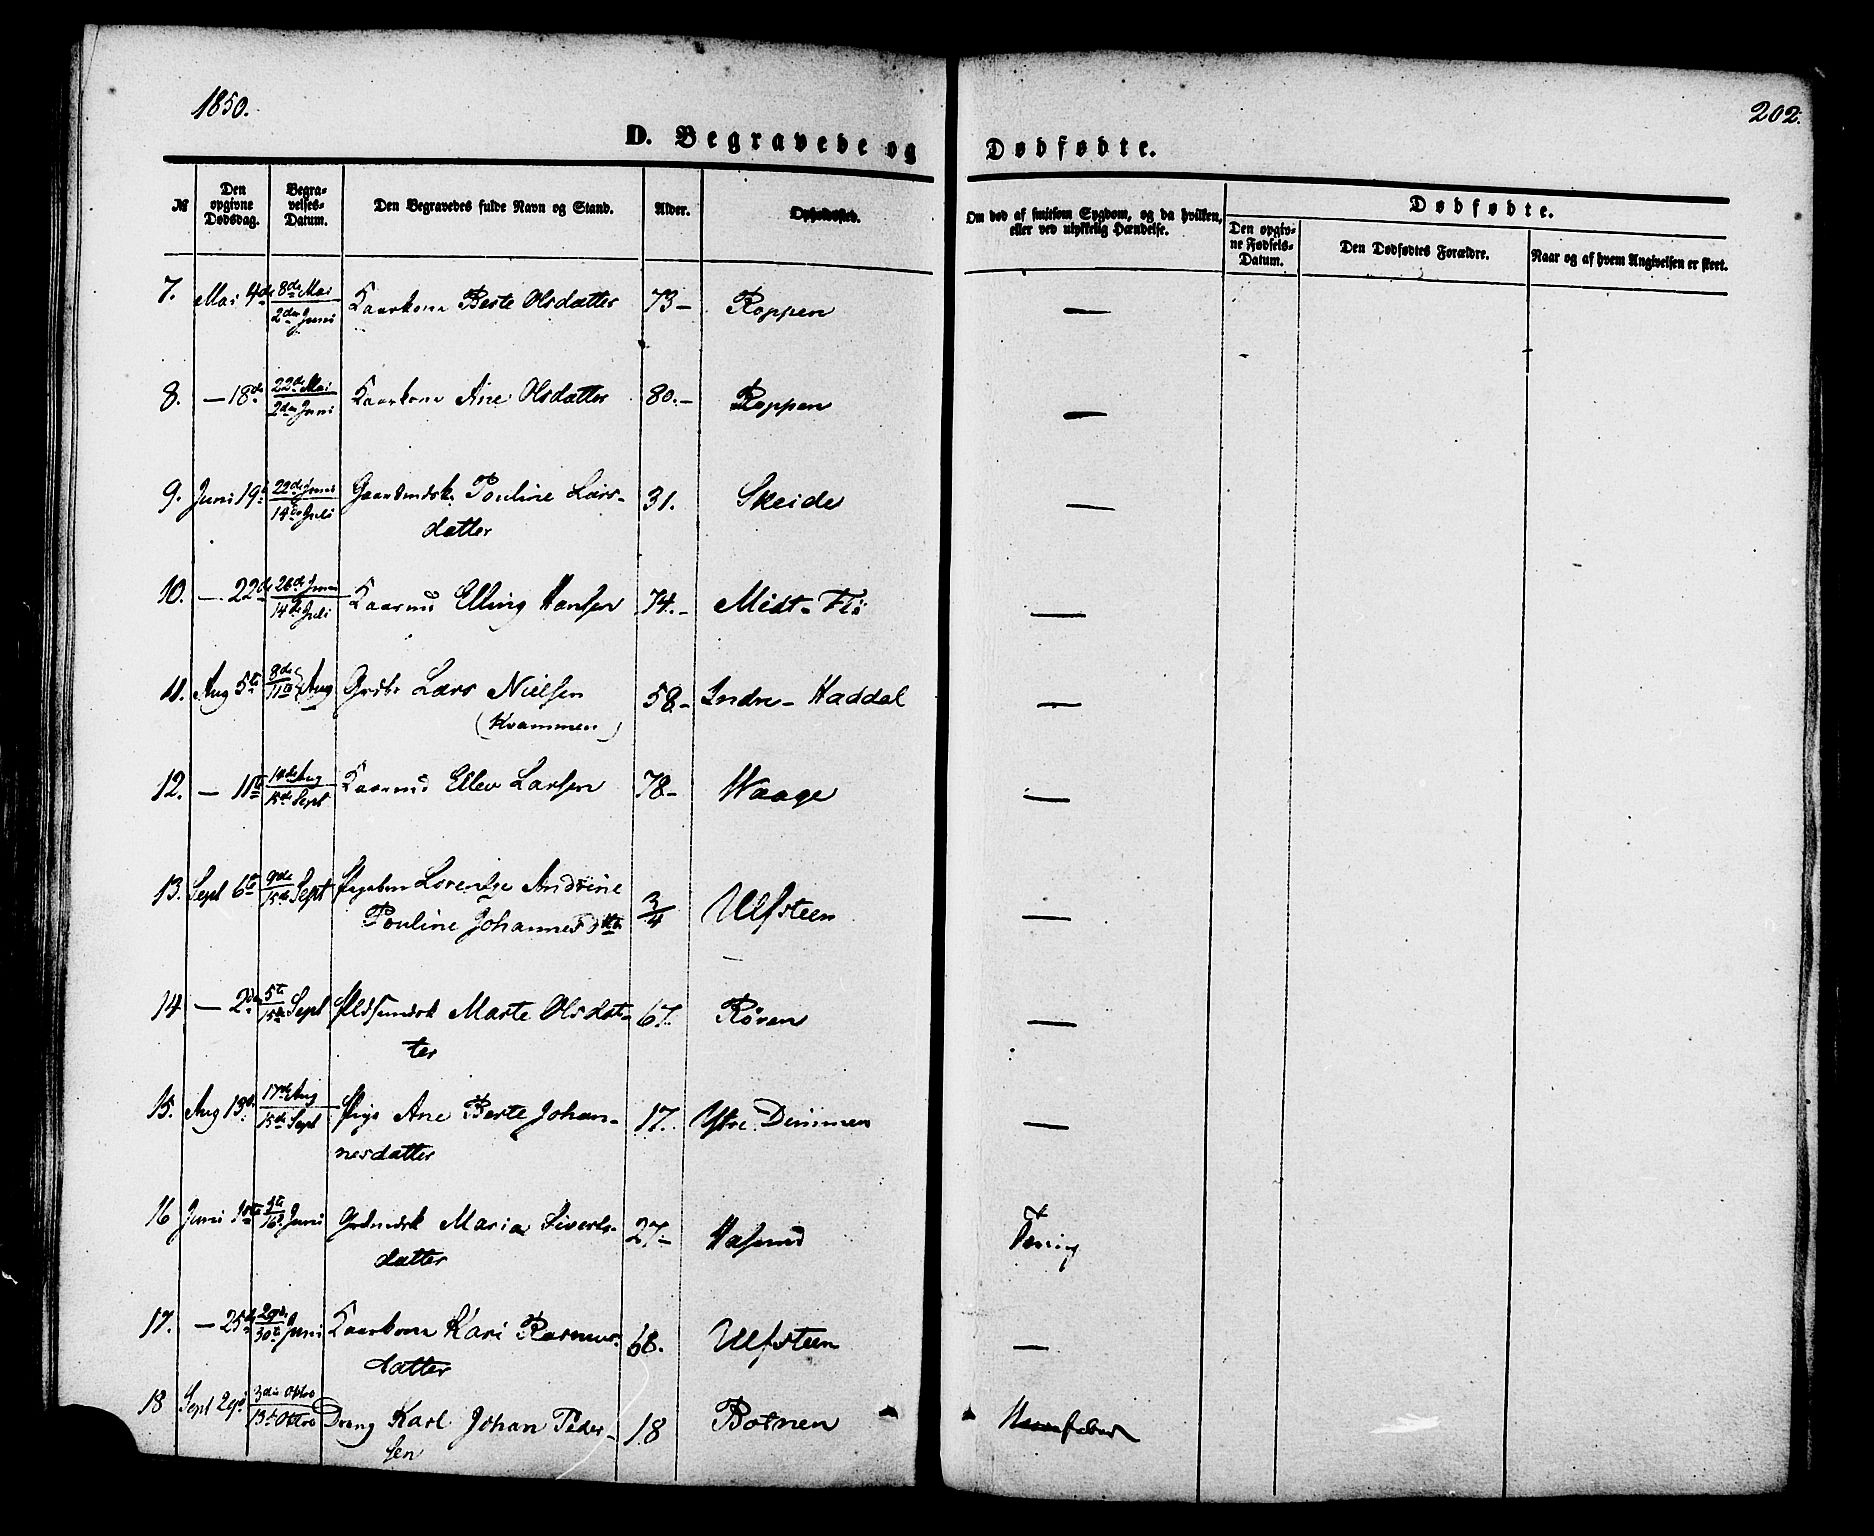 1850.
202.
D. Begravede og Dødfødte.
№
Den opgivne Dødsdag.
Begravelses-Datum.
Den Begravedes fulde Navn og Stand.
Alder.
Opholdssted.
Om død af smitsom Sygdom, og da hvilken, eller ved ulykkelig Hændelse.
Dødfødte.
Den opgivne Fødsels-Datum.
Den Dødfødtes Forældre.
Naar og af hvem Angivelsen er skeet.
7. Mai 4de 8de Mai Kaarkone Berte Olsdatter 73- Roppen —
2den Juni
8. — 18de 22de Mai Kaarkone Ane Olsdatter 80.- Roppen —
2den Juni
9. Juni 19 22de Juni Gaardmdsk. Pouline Lars- 31. Skeide —
14de Juli datter
10. — 22de 26de Juni Kaarmd Elling Hansen 74.- Midt-Flö —
14de Juli
11. Aug 5te 8de Aug Grdbr Lars Nielsen 58- Indre-Haddal —
11te (Kvammen)
12. — 11te 14de Aug Kaarmd Ellev Larsen 78- Waage —
15de Sept
13. Sept 6te 9de Sept Pigebrn Lorentse Andrine 3/4 Ulfsteen —
15de Pouline Johannesdtr
14 — 2den 5te Sept Pladsmdsk Marte Olsdat- 67. Rören —
15de ter
15. Aug 13de 17de Aug Pige Ane Berte Johan- 17. Ystre Dimmen —
15de Sept nesdatter
16 Juni 1ste 4te Juni Grdmdsk Maria Siverts- 27- Hasund
16de datter
17. — 25de 29de Juni Kaarkone Kari Rasmus- 68. Ulfsteen —
30te datter
18 Sept 29de 3die Oktbr Dreng Karl Johan Peder- 18 Botnen
13de Oktbr sen